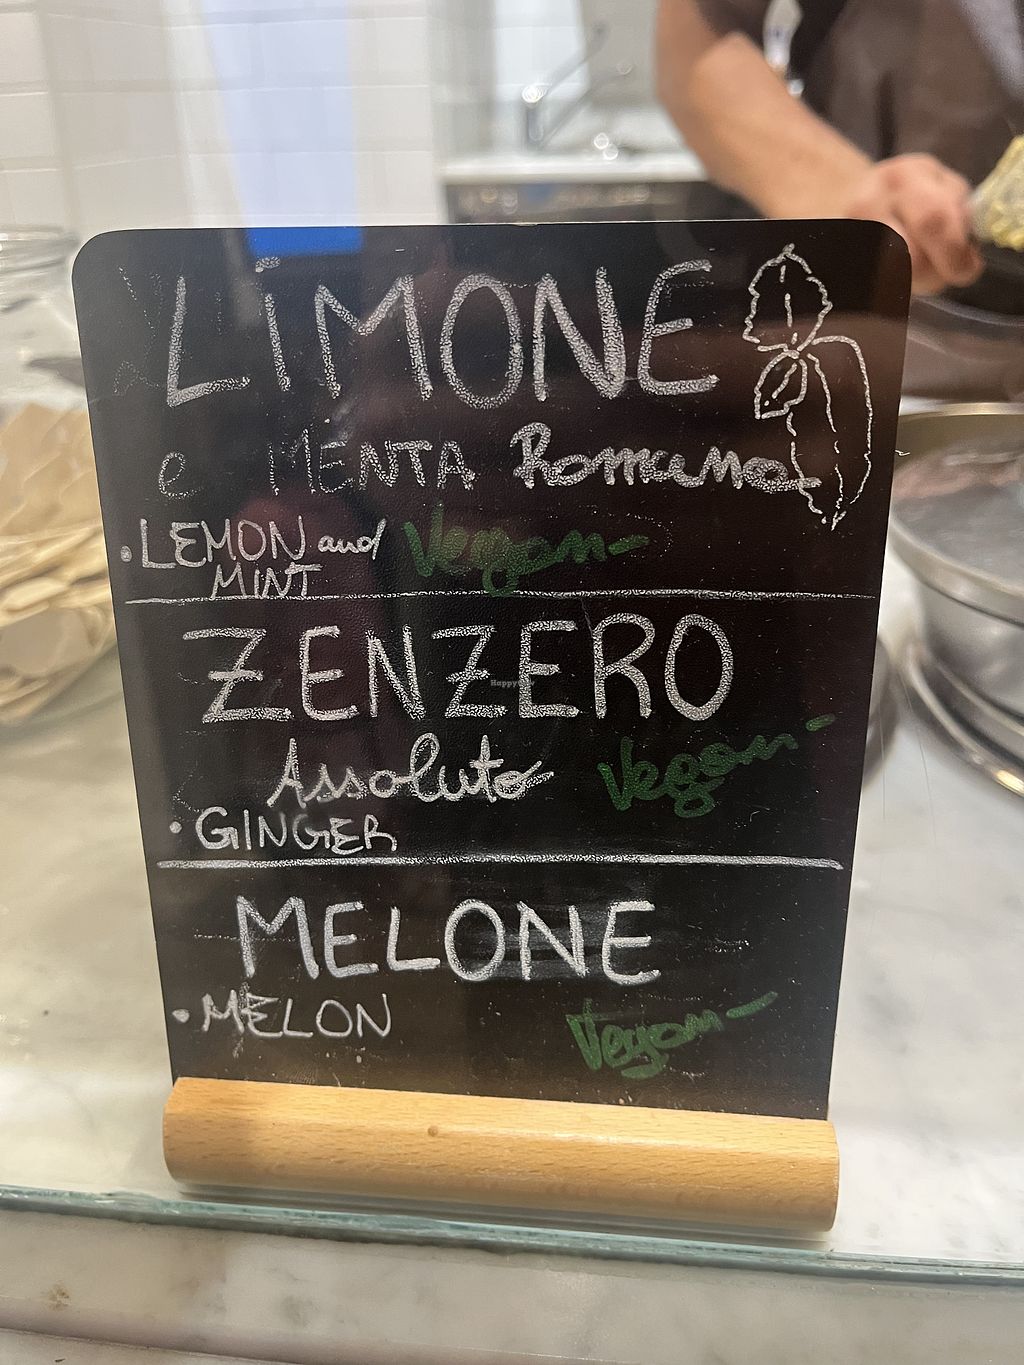 LiMONE
e MENTA Romana
• LEMON and
MINT
Vegan-
ZENZERO
HappyCow
Assoluto
Vegan-
• GINGER
MELONE
• MELON
Vegan-